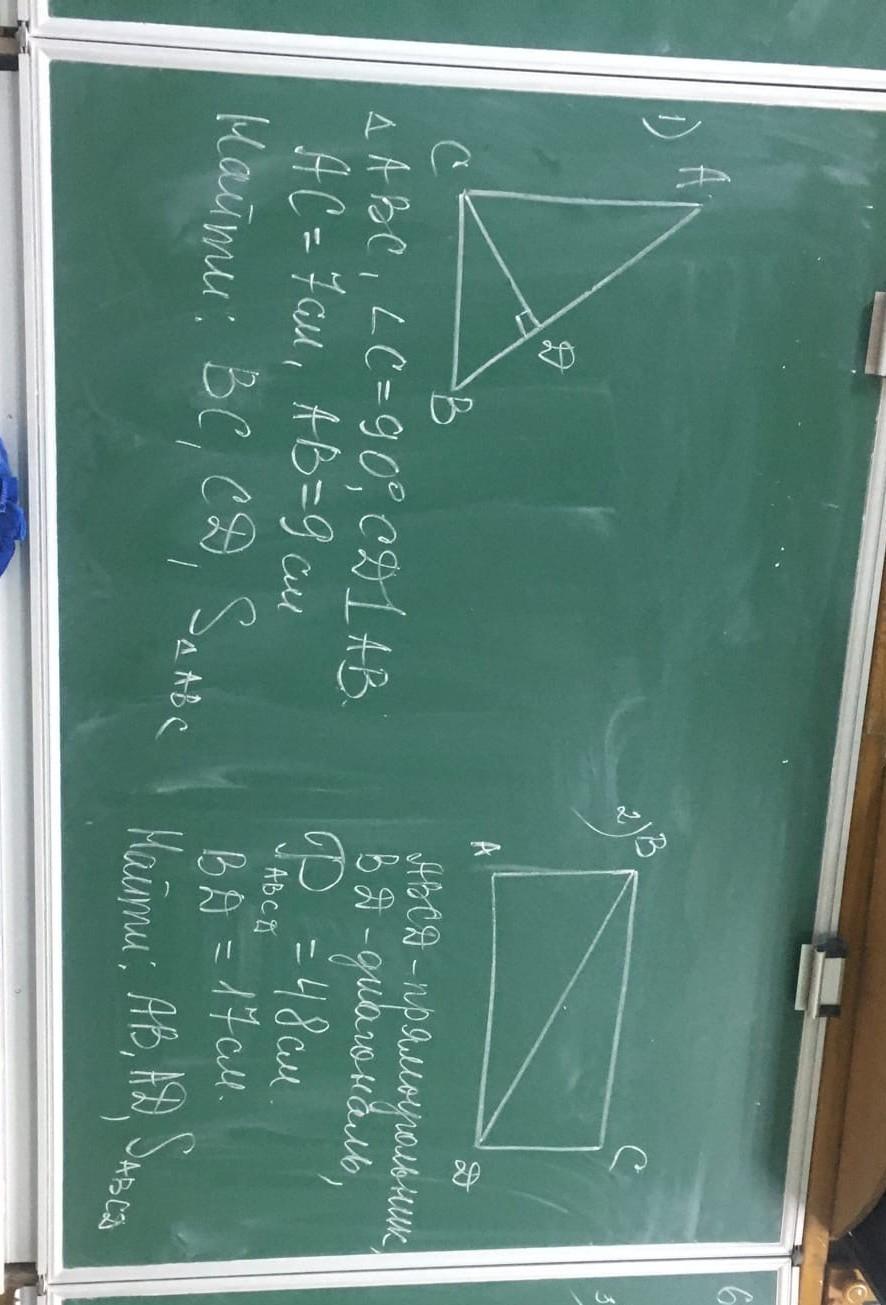 1)
A
D
C
B
△ ABC, ∠C=90°, CD⊥AB.
AC=7см, AB=9см
Найти: BC, CD, S△ABC
2)
B
C
A
D
ABCD-прямоугольник,
BD-диагональ,
P ABCD =48см.
BD=17см.
Найти: AB, AD, S ABCD
6
3